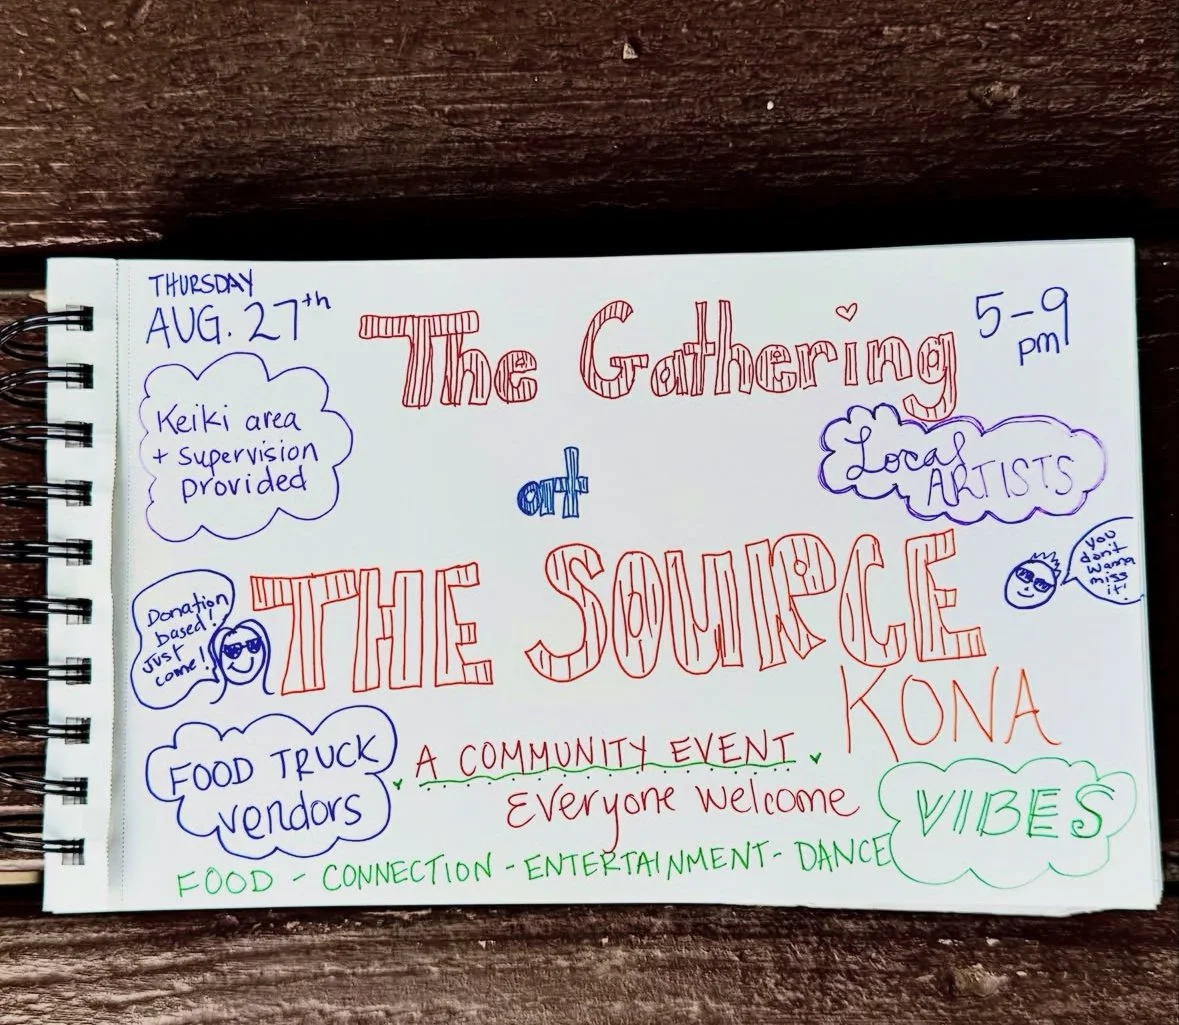 THURSDAY
AUG. 27th
The Gathering
5-9
pm
Keiki area
+ Supervision
provided
Local
ARTISTS
at
THE SOURCE
KONA
you
don't
wanna
miss
it!
Donation
based!
Just
come!
FOOD TRUCK
vendors
A COMMUNITY EVENT
Everyone Welcome
VIBES
FOOD - CONNECTION - ENTERTAINMENT - DANCE